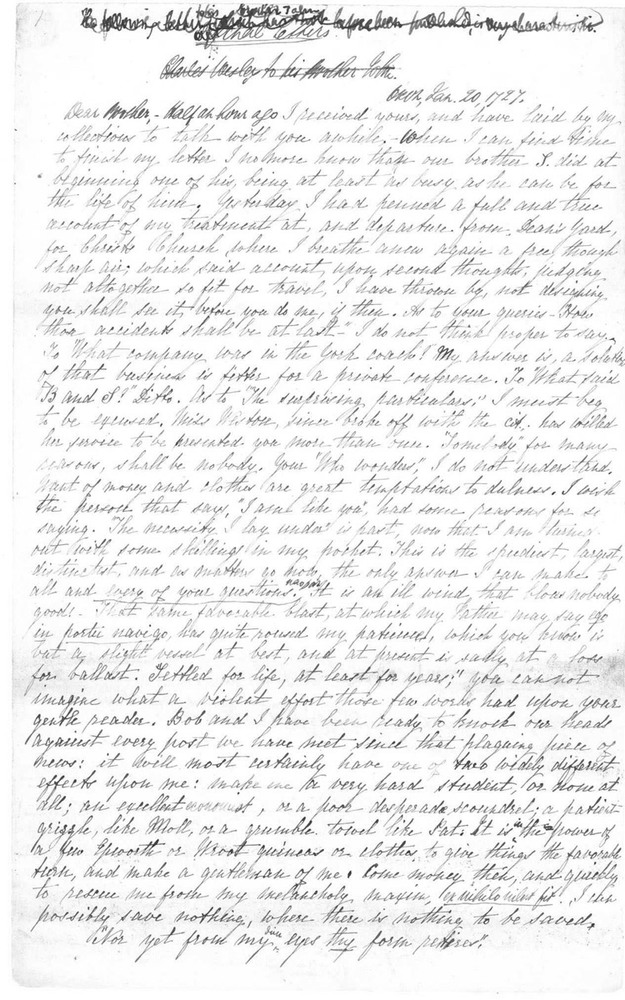 The following letter before been published, is very characteristic.
letters
Charles Wesley to his Mother
Oxon, Jan. 20, 1727.
Dear Mother, - Half an hour ago I received yours, and have laid by my
collections to talk with you awhile. - When I can find time
to finish my letter I no more know than our brother S. did at
beginning one of his, being at least as busy as he can be for
the life of him. Yesterday I had penned a full and true
account of my treatment at, and departure from, Dean's Yard,
for Christ's Church, where I breathe anew again a free, though
sharp air; which said account, upon second thoughts, judging
not altogether so fit for travel, I have thrown by, not designing
you shall see it, before you do me, if then. As to your queries - How
thou accidents shall be at last" I do not think proper to say.
To "What company was in the York coach?" My answer is, a Solution
of that business is fitter for a private conference. To "What said
B and S?" Ditto. As to "The surprising particulars," I must beg
to be excused. Miss Weston, since broke off with the cit. has willed
her service to be presented you more than once. "Somebody" for many
reasons, shall be nobody. Your "Who wonders," I do not understand.
Want of money and clothes are great temptations to dulness. I wish
the person that says, "I am like you", had some reasons for so
saying. The necessity I lay under is past, now that I am
out with some shillings in my pocket. This is the speediest, largest,
distinctest, and as matters go now, the only answer I can make to
all and every of your questions. It is an ill wind, that blows nobody
good. That same favorable blast, at which my Father may say ego
in portu navigo, has quite roused my patience, which you know is
but a slight vessel at best, and at present is sadly at a loss
for ballast. "Settled for life, at least for years," you can not
imagine what a violent effort those few words had upon your
gentle reader. Bob and I have been ready to knock our heads
against every post we have meet since that plaguing piece of
news: it will most certainly have one of two widely different
effects upon me: make me a very hard student, or none at
all; an excellent economist, or a poor desperado scoundrel; a patient
grizzle, like Moll, or a grumble towel like Pat. It is in the power of
a few Epworth or Wroot guineas or clothes, to give things the favorable
turn, and make a gentleman of me. Come money then, and quickly
to rescue me from my melancholy maxim, ex nihilo nihil fit. I can
possibly save nothing, where there is nothing to be saved.
"Nor yet from my dim eyes thy form retires".